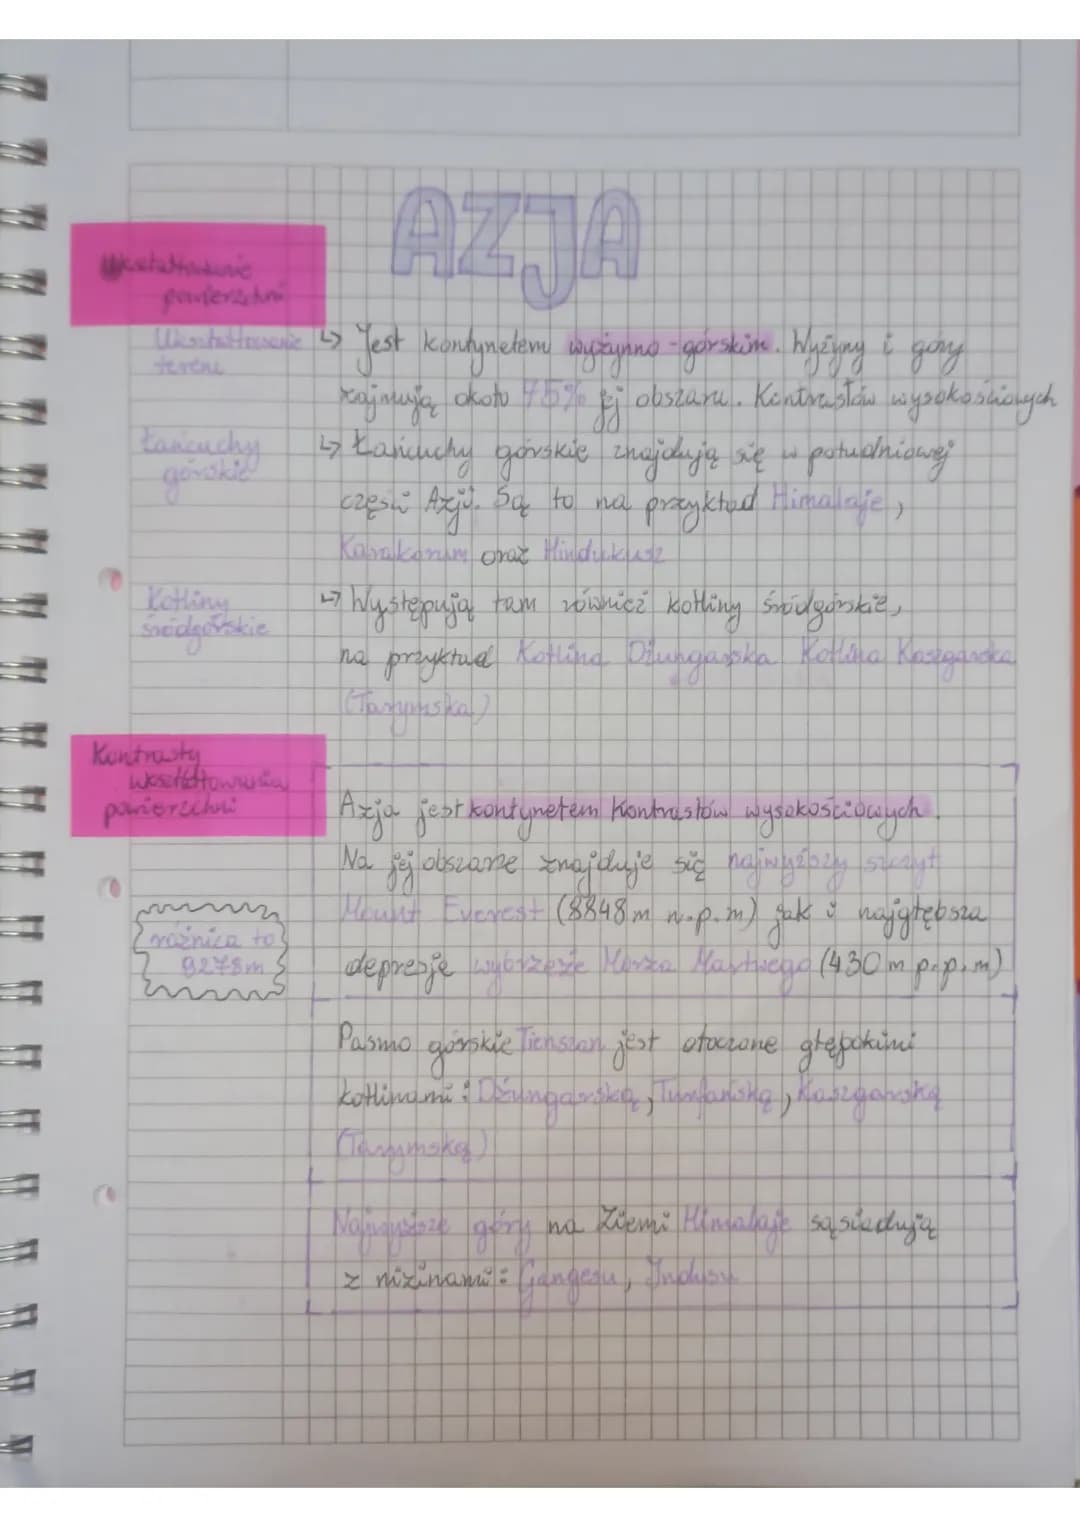 AZJA
Ukształtowanie
powierzchni
Ukształtowanie
terenu
↳ Jest kontynetem wyżynno-górskim. Wyżyny i góry
zajmują około 75% jej obszaru. Kontrastów wysokościowych
Łańcuchy
górskie
↳ Łańcuchy górskie znajdują się w południowej
części Azji. Są to na przykład Himalaje,
Karakorum oraz Hindukusz
Kotliny
śródgórskie
↳ Występują tam również kotliny śródgórskie,
na przykład Kotlina Dżungarska Kotlina Kaszgarska
(Tarymska)
Kontrasty
powierzchni
Azja jest kontynetem kontrastów wysokościowych.
Na jej obszarze znajduje się najwyższy szczyt
Mount Everest (8848 m n.p.m) jak i najgłębsza
depresje wybrzeże Morza Martwego (430 m p.p.m)
różnica to
9278m
Pasmo górskie Tienszan jest otoczone głębokimi
kotlinami: Dżungarską, Turfańską, Kaszgarską
(Tarymską)
Najwyższe góry na Ziemi Himalaje sąsiadują
z nizinami: Gangesu, Indusu